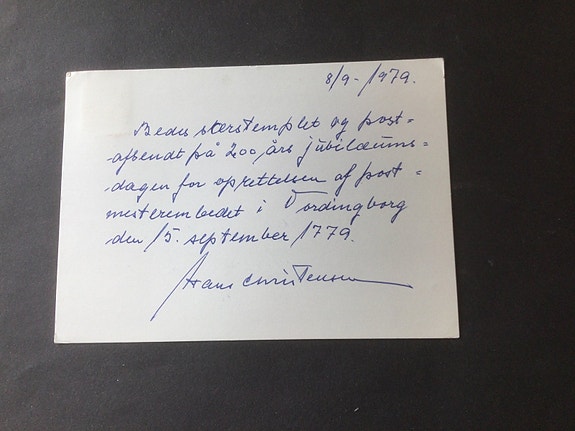 8/9-1979.
Bedes skerstemplet og post=
afsendt på 200 års jubilæums=
dagen for oprettelsen af post=
mesterembedet i Vordingborg
den 15. september 1779.
Hans Christensen